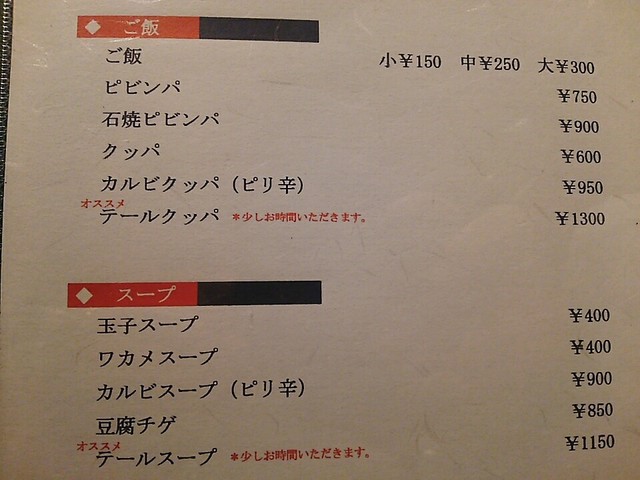 ◆ ご飯
ご飯 小￥150 中￥250 大￥300
ピビンパ ￥750
石焼ピビンパ ￥900
クッパ ￥600
カルビクッパ（ピリ辛） ￥950
オススメ
テールクッパ ＊少しお時間いただきます。 ￥1300
◆ スープ
玉子スープ ￥400
ワカメスープ ￥400
カルビスープ（ピリ辛） ￥900
豆腐チゲ ￥850
オススメ
テールスープ ＊少しお時間いただきます。 ￥1150